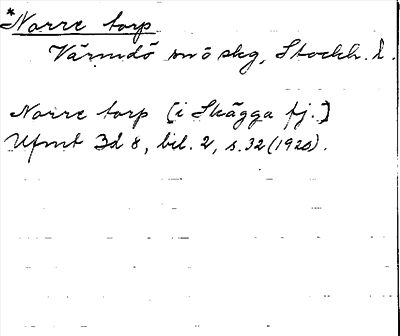 *Norre torp
Värmdö och skg, Stockh. l.
Norre torp [i Skägga fj.]
Ufmt 3d 8, bil. 2, s. 32 (1920).